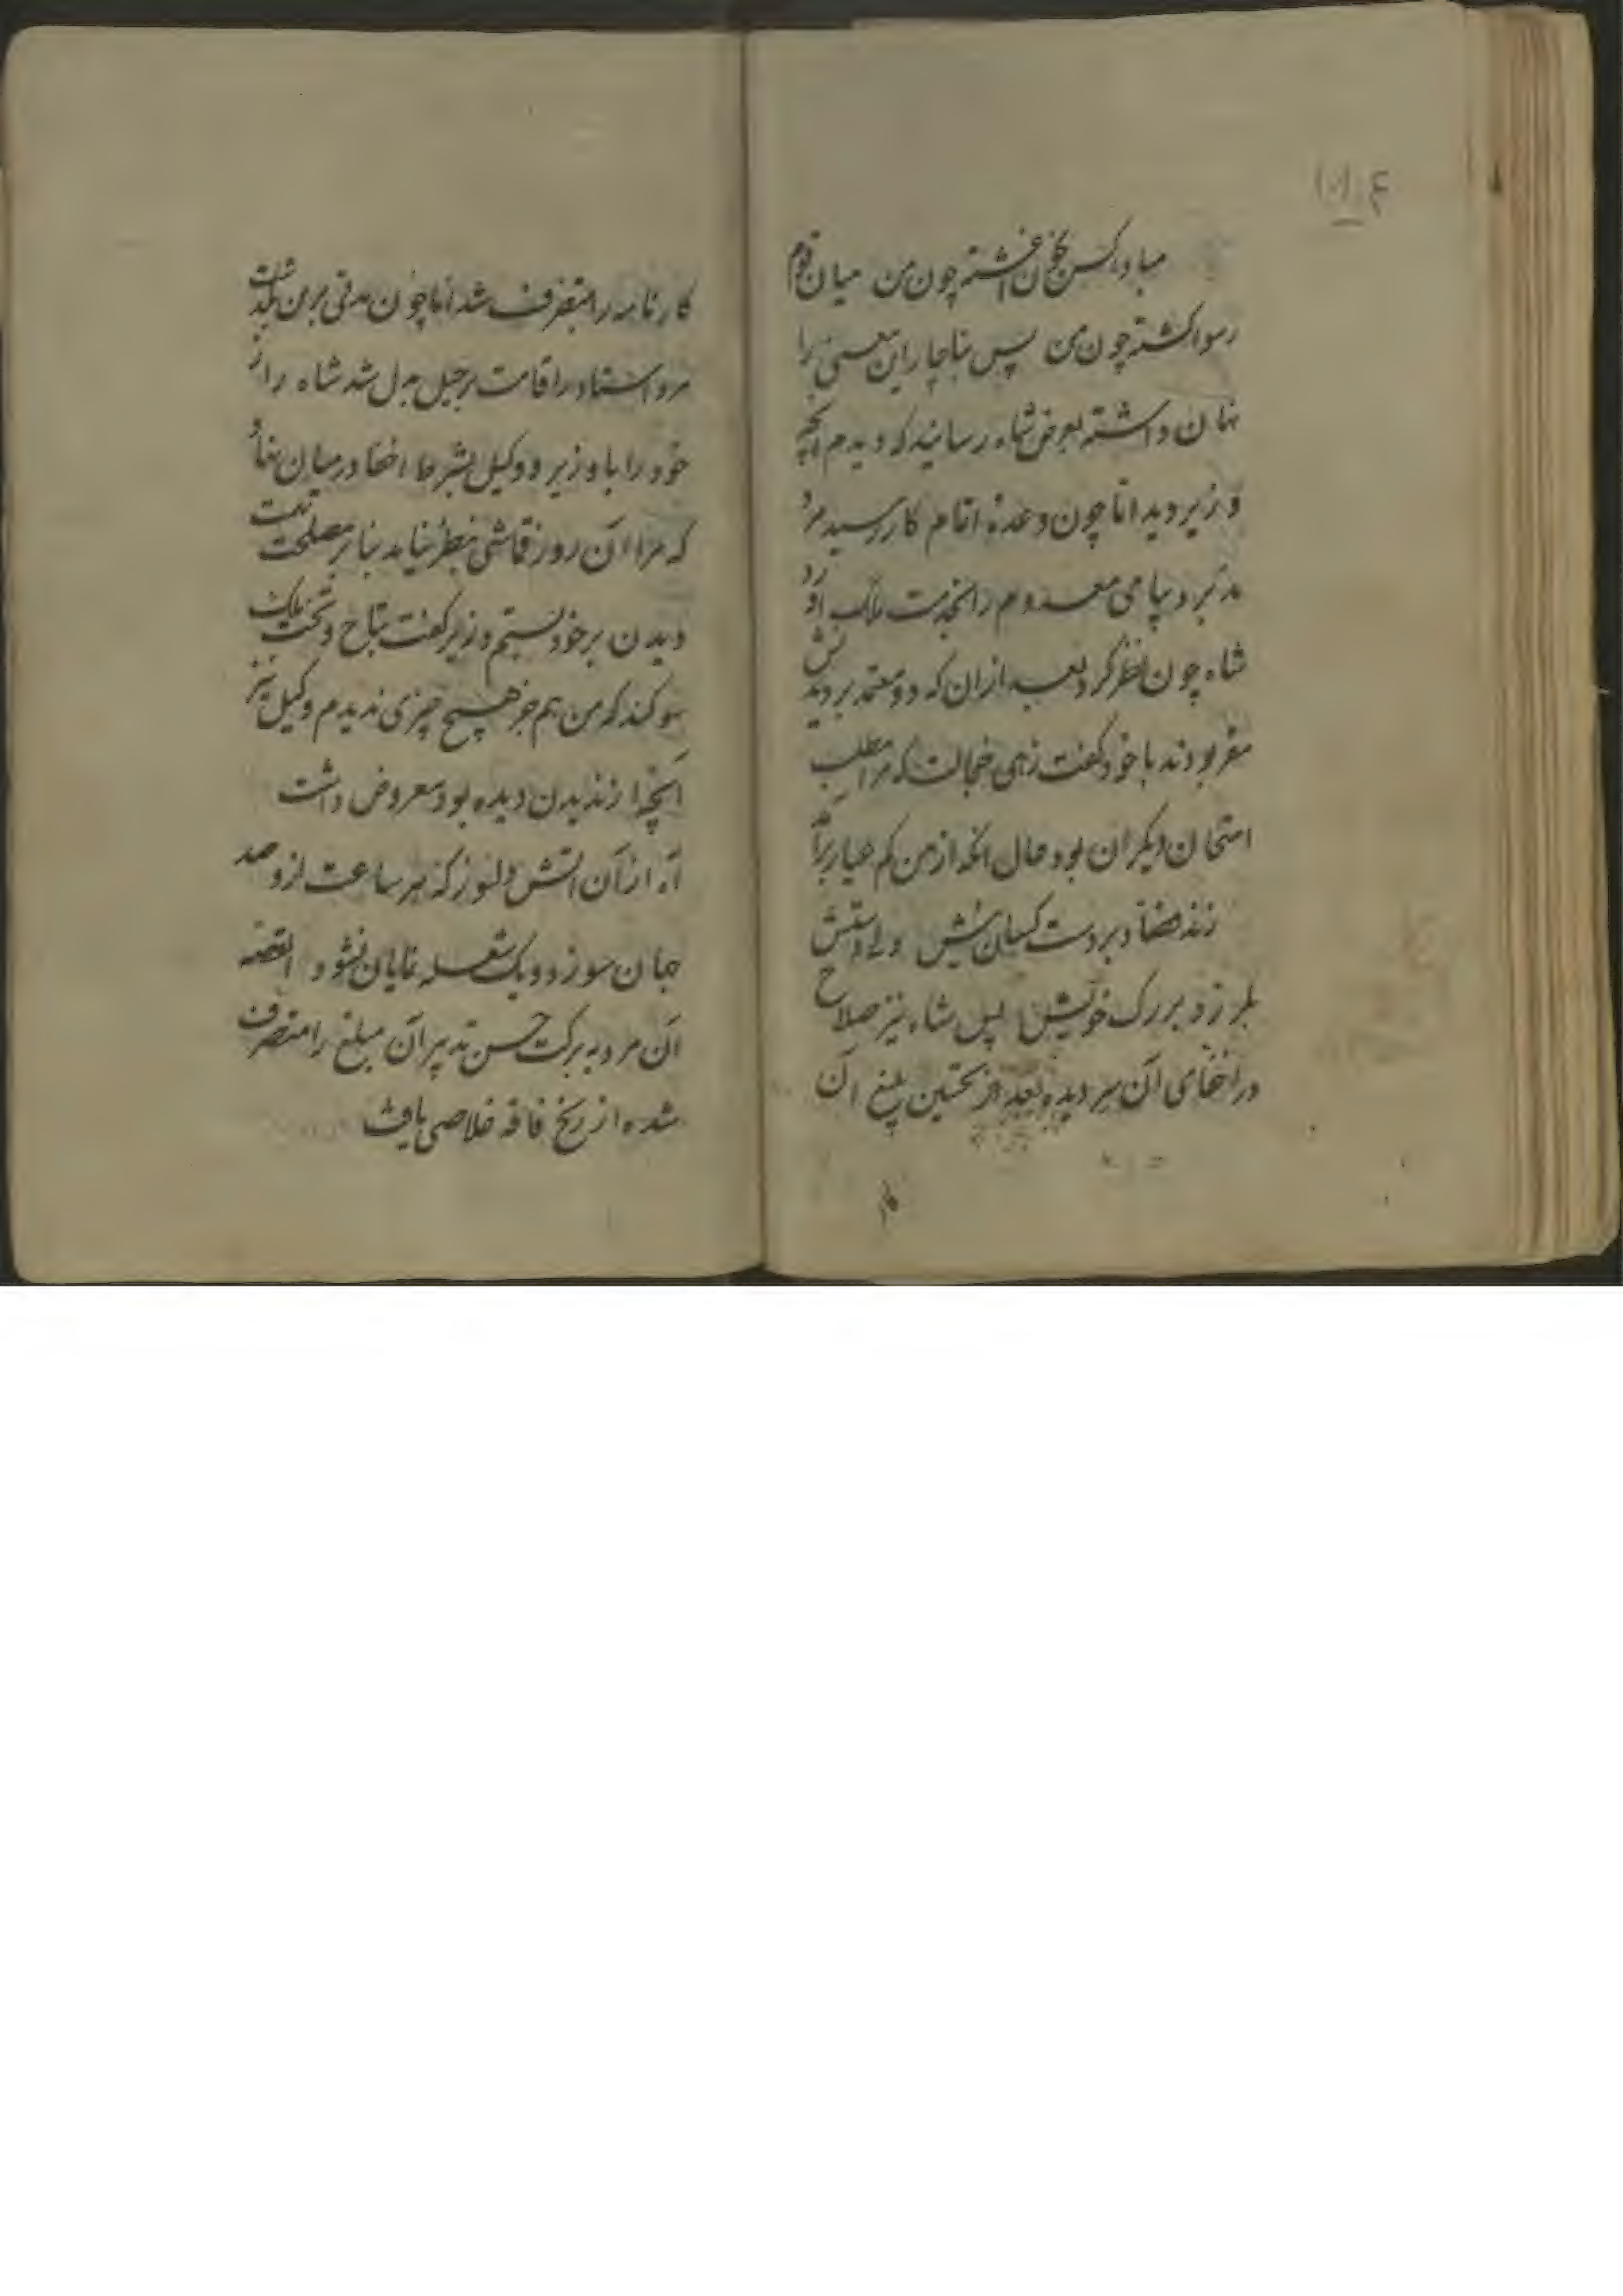 مبادا کس بخون آغشته چون من میان قوم
رسوا گشته چون من پس بناچار این معنی را
نهان داشته بعرض شاه رسانید که دیدم آنچه
وزیر دید اما چون وعده اتمام کار رسید مرد
مدبر دیبای معدوم را بخدمت ملک آورد
شاه چون نظر کرد بعد ازان که دو معتمد بر دیدنش
مقر بودند با خود گفت زهی خجالت که مرا مطلب
امتحان دیگران بود حال آنکه از من کم عیار برآمد
زند فصاد بر دست کسان نیش ولی دستش
بلرزد بر رک خویش پس شاه نیز صلاح
در اخفای آن سر دیده بعد از تحسین بلیغ آن
کار
کارنامه را متصرف شد اما چون مدتی برین گذشت
مرد استاد را اقامت برحیل بدل شد شاه راز
خود را با وزیر و وکیل بشرط اخفا در میان نهاد
که مرا آن روز قماشی بنظر نیامد بنابر مصلحت تهمت
دیدن بر خود بستم وزیر گفت بتاج و تخت ملک
سوکند که من هم جز هیچ چیزی ندیدم وکیل نیز
آنچه از ندیدن دیده بود معروض داشت
آه از آن آتش دلسوز که هر ساعت ازو صد
جان سوزد و یک شعله نمایان نشود القصه
آن مرد به برکت حسن تدبیر آن مبلغ را متصرف
شده از رنج فاقه خلاصی یافت